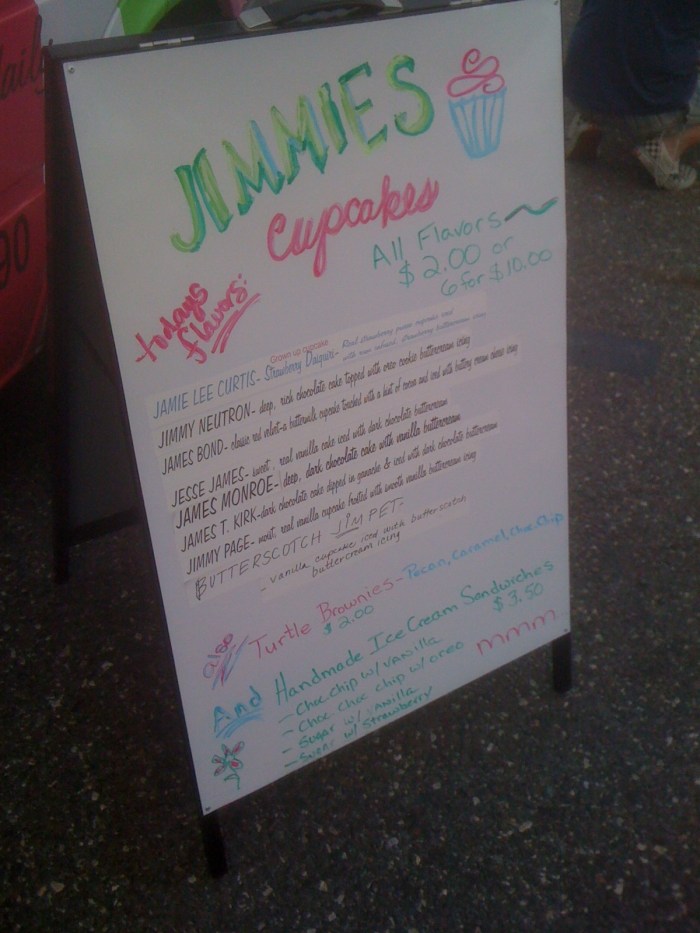 aily
90
JIMMIES
Cupcakes
All Flavors
$2.00 or
6 for $10.00
todays
flavors:
Grown up cupcake
JAMIE LEE CURTIS- Strawberry Daiquiri- Real strawberry puree cupcake iced
with rum strawberry buttercream
JIMMY NEUTRON- deep, rich chocolate cake topped with oreo cookie buttercream icing
JAMES BOND- classic red velvet-a buttermilk cupcake touched with a hint of cocoa and iced with buttery cream cheese icing
JESSE JAMES- moist, real vanilla cake iced with dark chocolate buttercream
JAMES MONROE- deep, dark chocolate cake with vanilla buttercream
JAMES T. KIRK-dark chocolate cake dipped in ganache & iced with dark chocolate buttercream
JIMMY PAGE- moist, real vanilla cupcake frosted with smooth vanilla buttercream icing
BUTTERSCOTCH JIM PET-
- vanilla cupcake iced with butterscotch
buttercream icing
also Turtle Brownies- Pecan, Caramel, Choc. Chip
$2.00
And Handmade Ice Cream Sandwiches
$3.50
- Choc chip w/ vanilla
- Choc Choc chip w/ oreo
- Sugar w/ vanilla
- Sugar w/ Strawberry
mmm